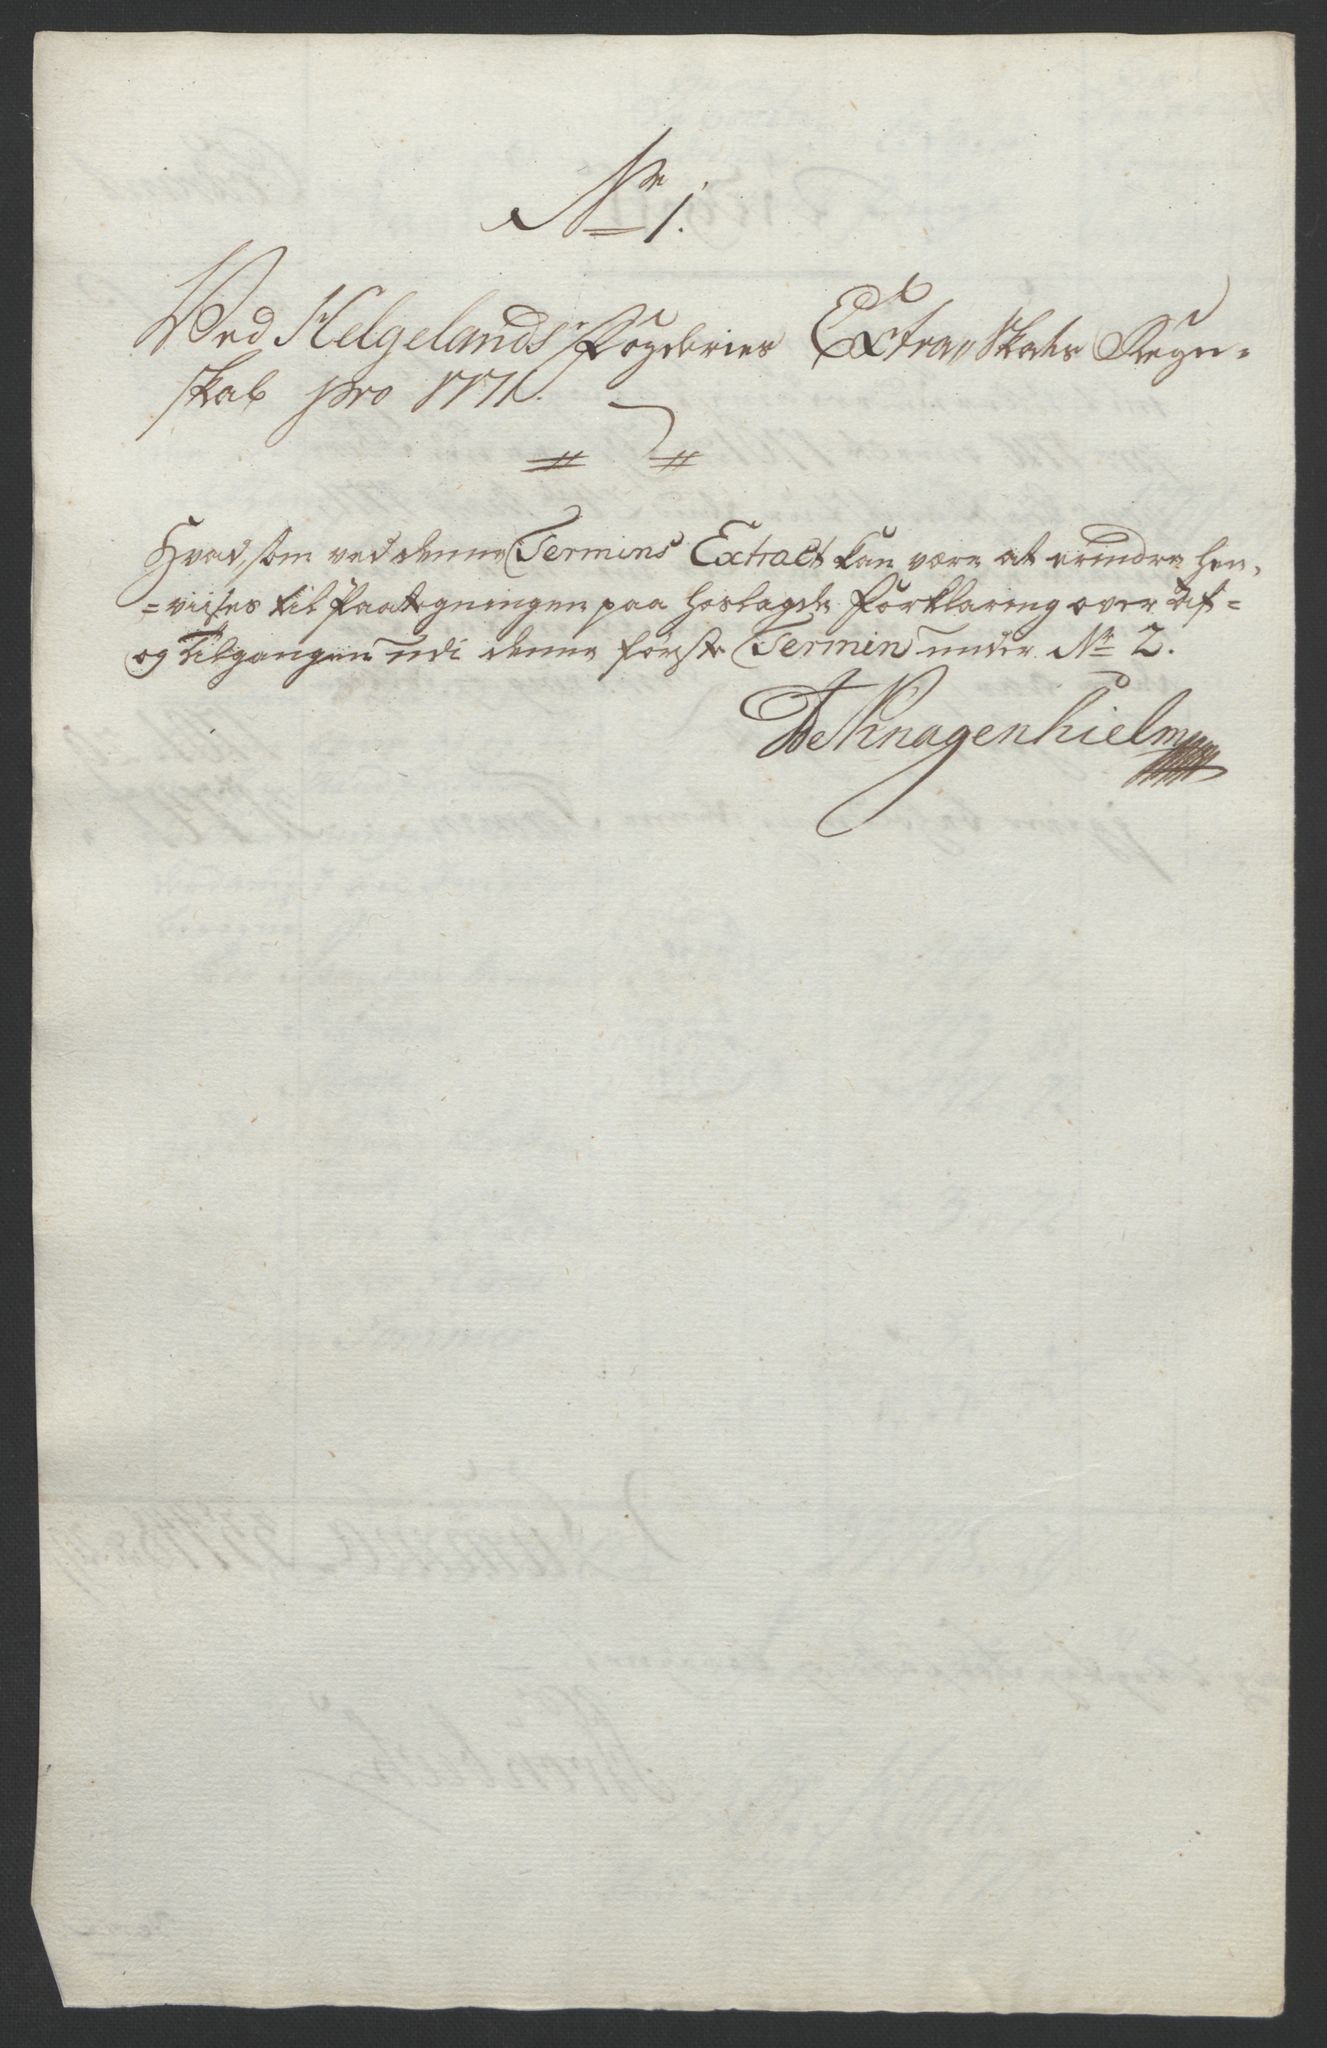 No 1.
Ved Helgelands Fogderies Extra Skats Regn=
skab pro 1771.
Hvad, som ved denne Termins Extract kan være at erindre hen,
=viises til Paategningen paa hoslagde Forklaring over Af=
og Tilgangen udi denne förste Termin under No 2.
De Knagenhielm